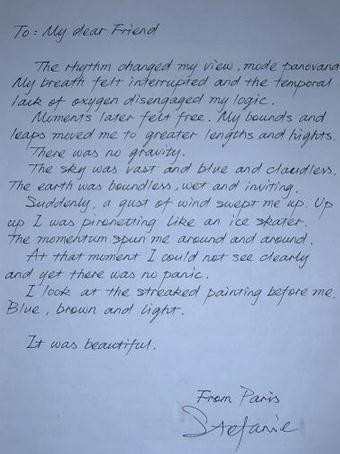 To: My dear Friend
The rhythm changed my view, made panorama
My breath felt interrupted and the temporal
lack of oxygen disengaged my logic.
Moments later felt free. My bounds and
leaps moved me to greater lengths and hights.
There was no gravity.
The sky was vast and blue and cloudless.
The earth was boundless, wet and inviting.
Suddenly, a gust of wind swept me up. Up
up I was pironetting like an ice skater.
The momentum spun me around and around.
At that moment I could not see clearly
and yet there was no panic.
I look at the streaked painting before me.
Blue, brown and light.
It was beautiful.
From Paris
Stefanie